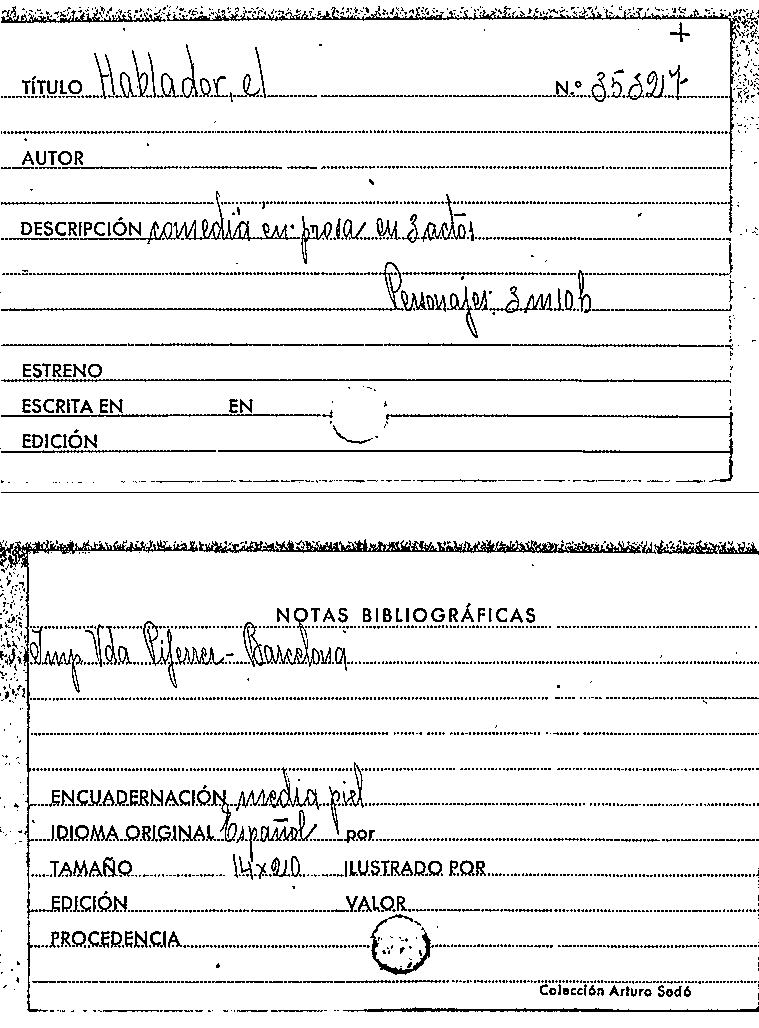 +
TÍTULO Hablador, el N.º 35327
AUTOR
DESCRIPCIÓN comedia en prosa en 3 actos
Personajes: 3m 10h
ESTRENO
ESCRITA EN EN
EDICIÓN
NOTAS BIBLIOGRÁFICAS
Imp Vda Piferrer - Barcelona
ENCUADERNACIÓN media piel
IDIOMA ORIGINAL Español por
TAMAÑO 14x20 ILUSTRADO POR
EDICIÓN VALOR
PROCEDENCIA
Colección Arturo Sedó